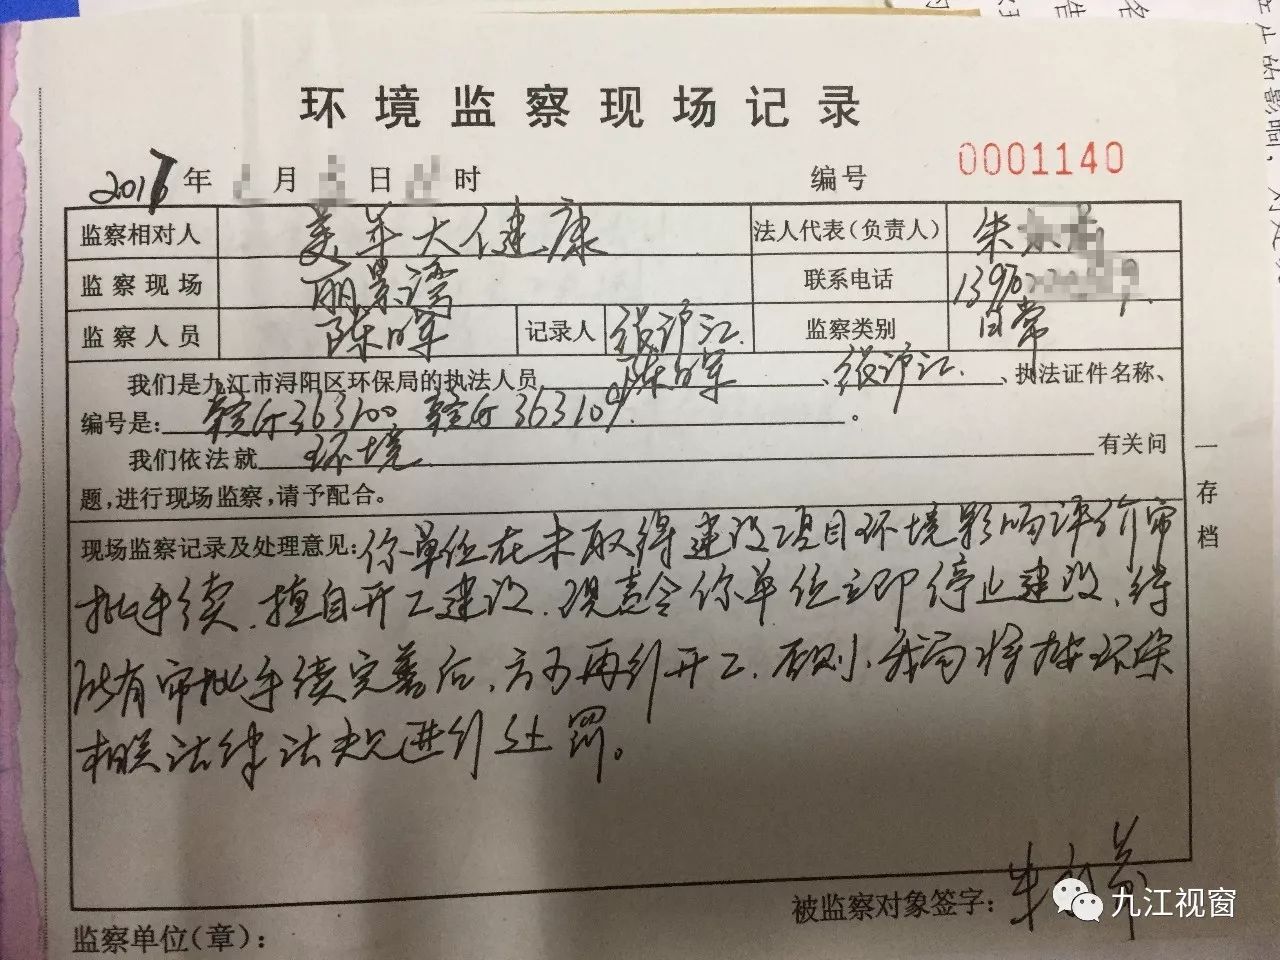 环境监察现场记录
2017年 月 日 时 编号 0001140
监察相对人 美年大健康 法人代表(负责人) 朱
监察现场 丽景湾 联系电话 1397
监察人员 陈晖 记录人 张沪江 监察类别 日常
我们是九江市浔阳区环保局的执法人员 陈晖、张沪江、执法证件名称、
编号是: 赣G363100 赣G363109。
我们依法就 环境 有关问
题,进行现场监察,请予配合。
现场监察记录及处理意见:你单位在未取得建设项目环境影响评价审
批手续,擅自开工建设,现责令你单位立即停止建设,待
所有审批手续完善后,方可再行开工,否则,我局将按环保
相关法律法规进行处罚。
被监察对象签字:朱
监察单位(章):
一存档
九江视窗